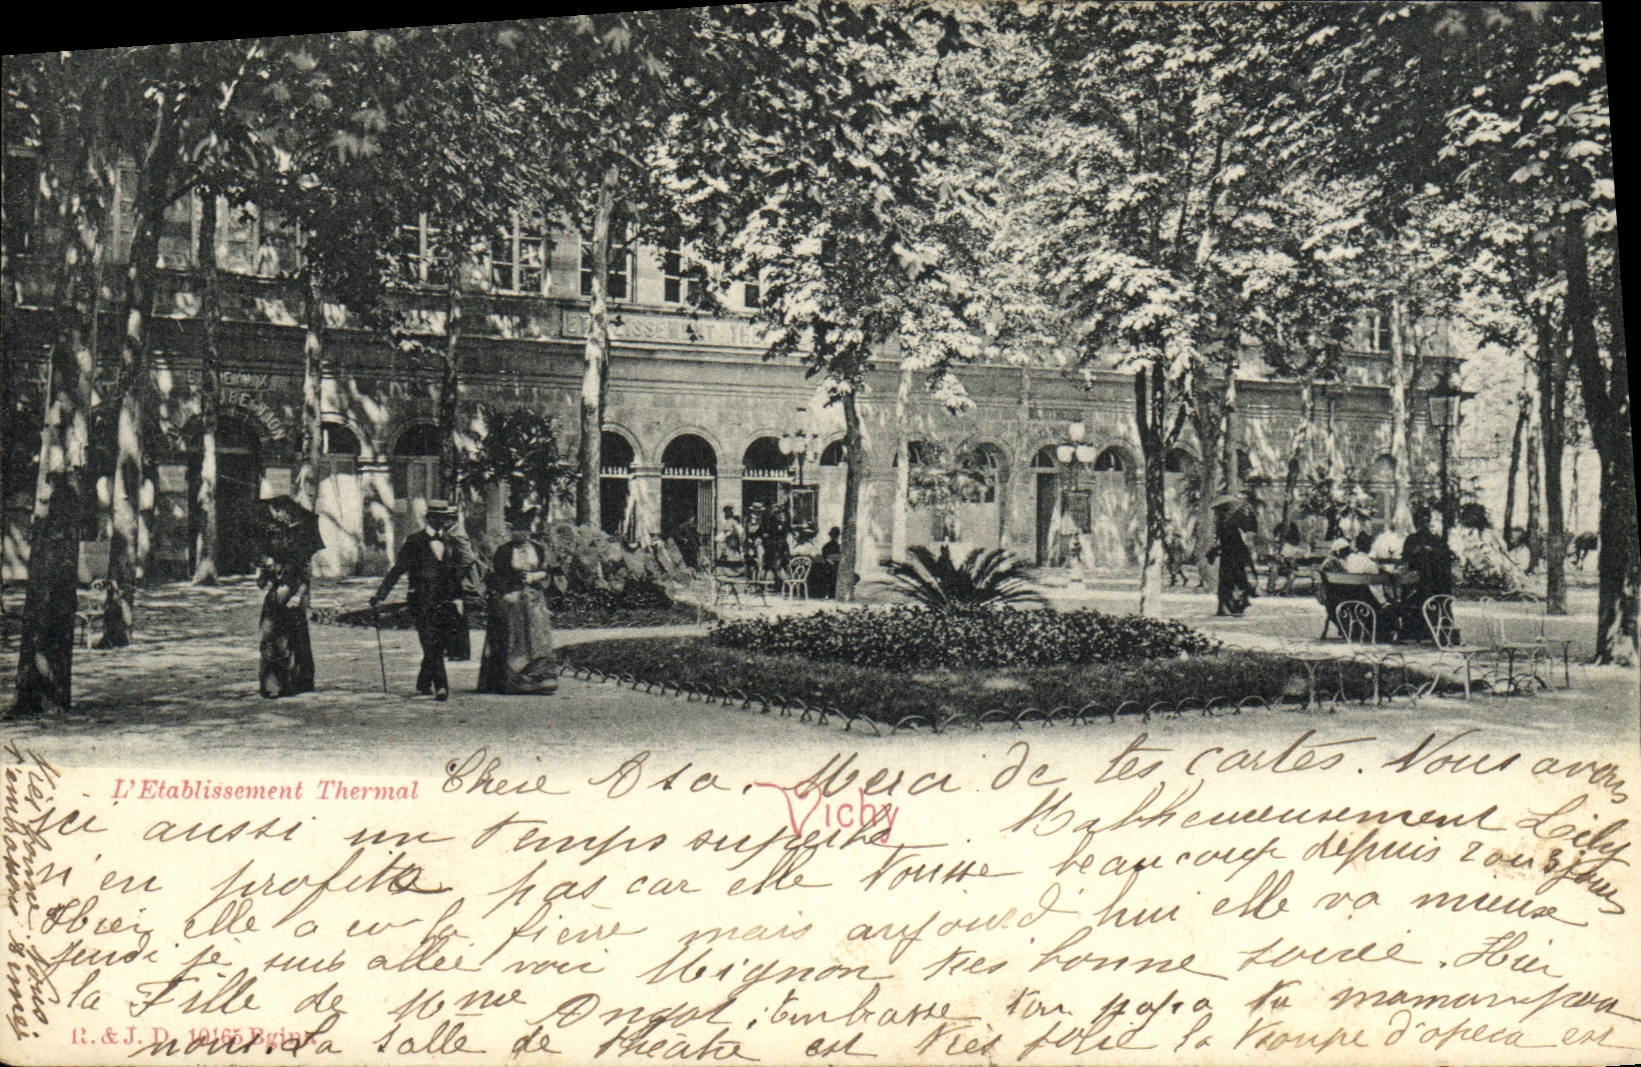 ETABLISSEMENT THE
L'Etablissement Thermal
Vichy
Chère Asa. Merci de tes cartes. Nous avons
ici aussi un temps superbe. Malheureusement Lily
n'en profite pas car elle tousse beaucoup depuis 2 ou 3 jours
Hier elle a eu la fièvre mais aujourd'hui elle va mieux
Jeudi je suis allée voir Mignon très bonne soirée. Hier
la Fille de Mme Angot. Embrasse ton papa ta maman pour
nous. La salle de théâtre est très jolie la troupe d'opéra est
très bonne. Nous
t'embrassons
R. & J. D. 10165 Bginn